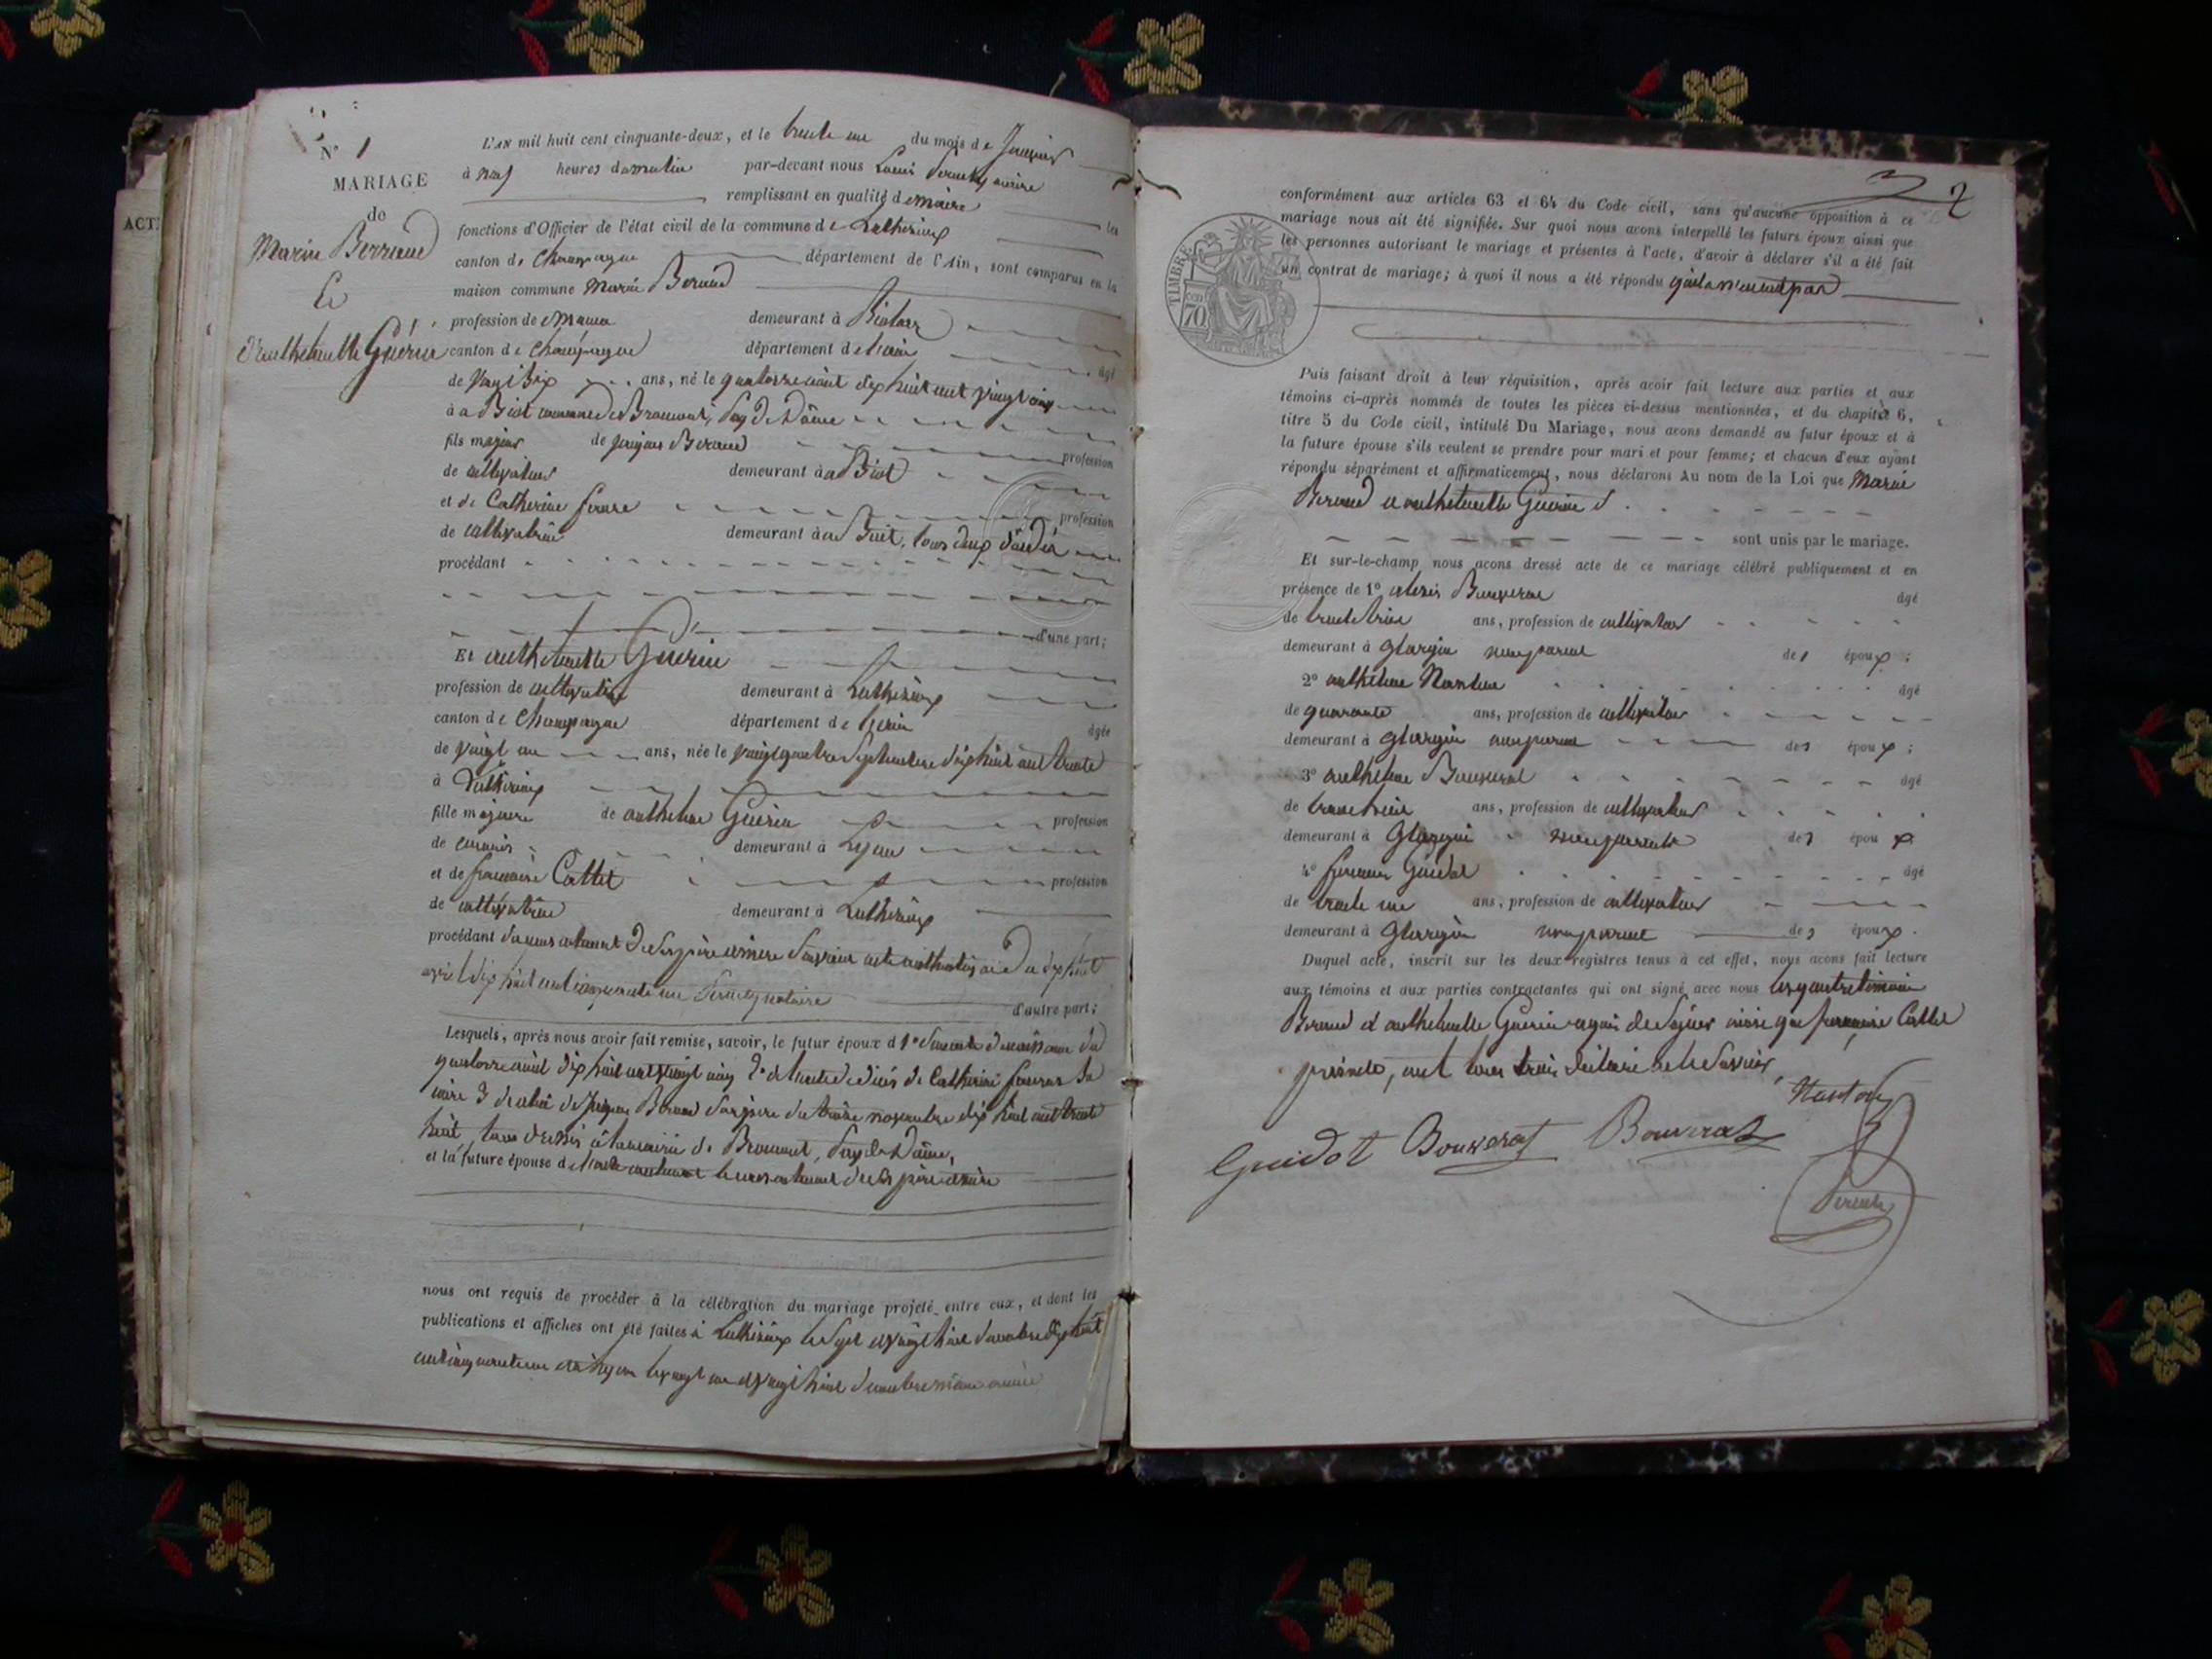 ACT
N° 1
MARIAGE
de
Marin Berraud
Et
Anthelmette Guérin
L'AN mil huit cent cinquante-deux, et le trente un du mois de Janvier
à neuf heures du matin par-devant nous Louis maire
remplissant en qualité de maire les
fonctions d'Officier de l'état civil de la commune de Luthézieux
canton de Champagne département de l'Ain, sont comparus en la
maison commune Marin Beraud
profession de maçon demeurant à
canton de Champagne département de l'ain âgé
de vingt six ans, né le quatorze août dix huit cent vingt cinq
à au Biot commune de Bromont, Puy de Dôme
fils majeur de Jacques Beraud profession
de cultivateur demeurant à au Biot
et de Catherine profession
de cultivatrice demeurant à au Biot, tous deux
procédant
d'une part;
Et anthelmette Guerin
profession de cultivatrice demeurant à Luthézieux
canton de Champagne département de l'ain âgée
de vingt un ans, née le vingt quatre septembre dix huit cent trente
à Luthézieux
fille majeure de anthelme Guérin profession
de demeurant à Lyon
et de françoise Cottet profession
de cultivatrice demeurant à Luthézieux
procédant du consentement de ses père et mère suivant acte du dix huit
avril dix huit cent cinquante un notaire
d'autre part;
Lesquels, après nous avoir fait remise, savoir, le futur époux de 1° de naissance du
quatorze août dix huit cent vingt cinq 2° de l'acte de décès de Catherine sa
mère 3° de celui de Jacques Beraud son père du treize novembre dix huit cent trente
huit, tous à la mairie de Bromont, Puy de Dôme,
et la future épouse de l'acte contenant le consentement de ses père et mère
nous ont requis de procéder à la célébration du mariage projeté entre eux, et dont les
publications et affiches ont été faites à Luthézieux le sept et vingt huit dix huit
cent cinquante un et à Lyon le vingt un et vingt huit même année
2
TIMBRE
70
conformément aux articles 63 et 64 du Code civil, sans qu'aucune opposition à ce
mariage nous ait été signifiée. Sur quoi nous avons interpellé les futurs époux ainsi que
les personnes autorisant le mariage et présentes à l'acte, d'avoir à déclarer s'il a été fait
un contrat de mariage; à quoi il nous a été répondu
Puis faisant droit à leur réquisition, après avoir fait lecture aux parties et aux
témoins ci-après nommés de toutes les pièces ci-dessus mentionnées, et du chapitre 6,
titre 5 du Code civil, intitulé Du Mariage, nous avons demandé au futur époux et à
la future épouse s'ils veulent se prendre pour mari et pour femme; et chacun d'eux ayant
répondu séparément et affirmativement, nous déclarons Au nom de la Loi que Marin
Beraud et anthelmette Guerin
sont unis par le mariage.
Et sur-le-champ nous avons dressé acte de ce mariage célébré publiquement et en
présence de 1° alexis Bouverat âgé
de trente trois ans, profession de cultivateur
demeurant à glargin non parent des époux;
2° anthelme Nanton âgé
de quarante ans, profession de cultivateur
demeurant à glargin non parent des époux;
3° anthelme Bouverat âgé
de ans, profession de cultivateur
demeurant à Glargin non parent des époux
4° Guidot âgé
de trente un ans, profession de cultivateur
demeurant à Glargin non parent des époux.
Duquel acte, inscrit sur les deux registres tenus à cet effet, nous avons fait lecture
aux témoins et aux parties contractantes qui ont signé avec nous les quatre témoins
Beraud et anthelmette Guerin requis de signer ainsi que françoise Cottet
présente, ont tous trois déclaré ne le savoir,
Nanton
Guidot Bouverat Bouverat